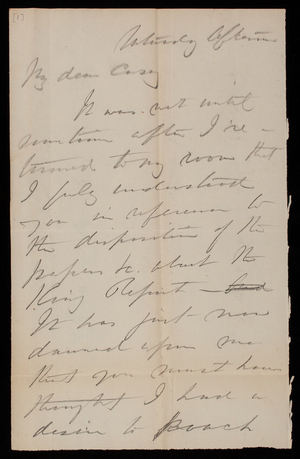 (1)
Saturday Afternoon
My dear Casey
It was not until
sometime after I re-
turned to my room that
I fully understood
you in reference to
the disposition of the
papers &c. about the
King Report —
It has just now
dawned upon me
that you must have
thought I had a
desire to Poach